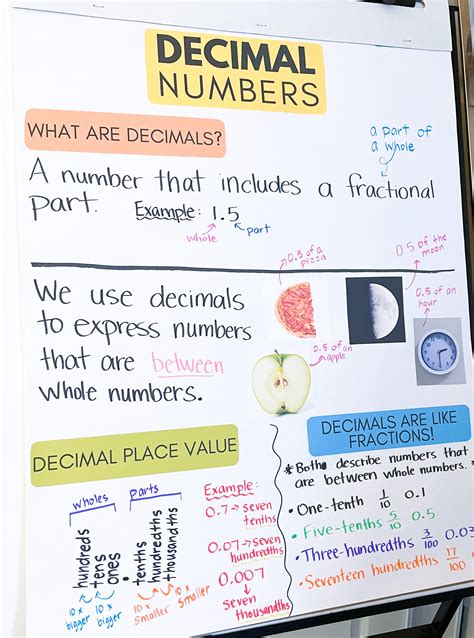 DECIMAL
NUMBERS
WHAT ARE DECIMALS?
a part of
a whole
A number that includes a fractional
part.
Example: 1.5
whole
part
We use decimals
to express numbers
that are between
whole numbers.
0.5 of a
pizza
0.5 of the
moon
0.5 of an
hour
0.5 of an
apple
DECIMAL PLACE VALUE
wholes
parts
hundreds
tens
ones
.
tenths
hundredths
thousandths
10x
bigger
10x
bigger
10x
smaller
10x
smaller
Example:
0.7 → seven
tenths
0.07 → seven
hundredths
0.007
↓
seven
thousandths
DECIMALS ARE LIKE
FRACTIONS!
* Both describe numbers that
are between whole numbers.
• One-tenth 1/10 0.1
• Five-tenths 5/10 0.5
• Three-hundredths 3/100 0.03
• Seventeen hundredths 17/100